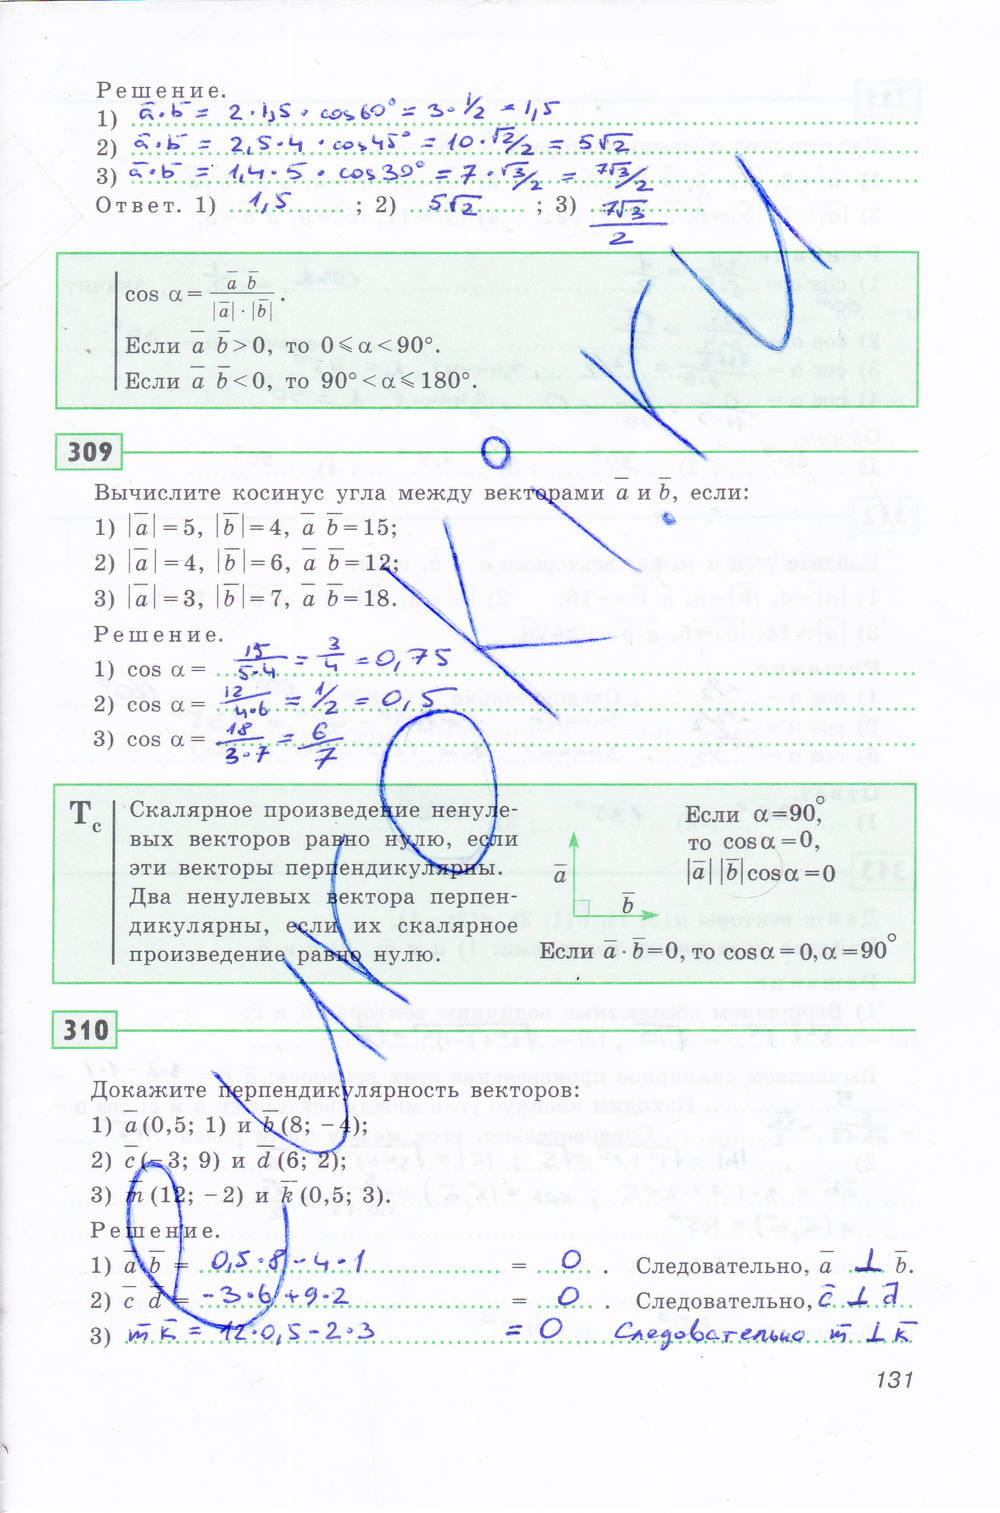 Решение.
1) a̅·b̅ = 2·1,5·cos60° = 3·1/2 = 1,5
2) a̅·b̅ = 2,5·4·cos45° = 10·√2/2 = 5√2
3) a̅·b̅ = 1,4·5·cos30° = 7·√3/2 = 7√3/2
Ответ. 1) 1,5 ; 2) 5√2 ; 3) 7√3/2
cos α = a̅ b̅ / |a̅|·|b̅|.
Если a̅ b̅ > 0, то 0 ⩽ α < 90°.
Если a̅ b̅ < 0, то 90° < α ⩽ 180°.
309
Вычислите косинус угла между векторами a̅ и b̅, если:
1) |a̅| = 5, |b̅| = 4, a̅ b̅ = 15;
2) |a̅| = 4, |b̅| = 6, a̅ b̅ = 12;
3) |a̅| = 3, |b̅| = 7, a̅ b̅ = 18.
Решение.
1) cos α = 15/5·4 = 3/4 = 0,75
2) cos α = 12/4·6 = 1/2 = 0,5
3) cos α = 18/3·7 = 6/7
Тс
Скалярное произведение ненуле-
вых векторов равно нулю, если
эти векторы перпендикулярны.
Два ненулевых вектора перпен-
дикулярны, если их скалярное
произведение равно нулю.
a̅
b̅
Если α=90°,
то cos α = 0,
|a̅| |b̅| cos α = 0
Если a̅·b̅=0, то cos α = 0, α = 90°
310
Докажите перпендикулярность векторов:
1) a̅ (0,5; 1) и b̅ (8; −4);
2) c̅ (−3; 9) и d̅ (6; 2);
3) m̅ (12; −2) и k̅ (0,5; 3).
Решение.
1) a̅ b̅ = 0,5·8 − 4·1 = 0. Следовательно, a̅ ⊥ b̅.
2) c̅ d̅ = −3·6 + 9·2 = 0. Следовательно, c̅ ⊥ d̅
3) m̅ k̅ = 12·0,5 − 2·3 = 0 Следовательно m̅ ⊥ k̅
131